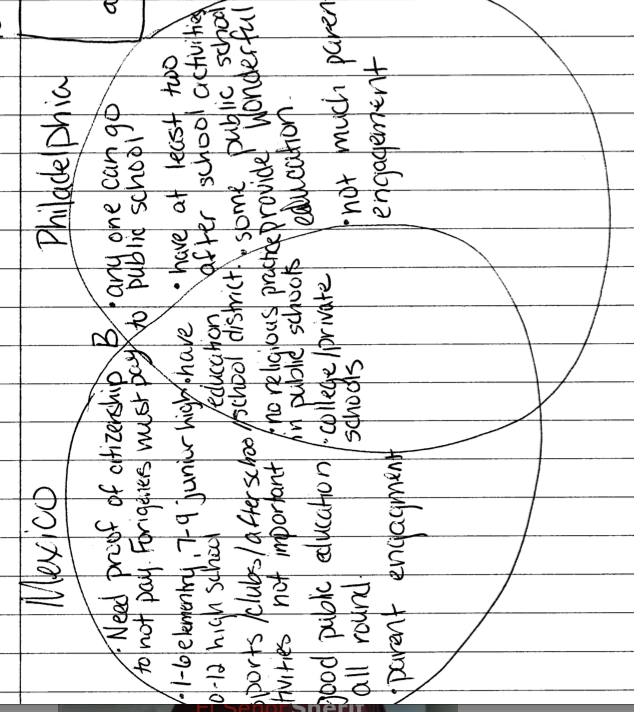 Mexico
· Need proof of citizenship
to not pay. Forigeiers must pay
· 1-6 elementry, 7-9 junior high
0-12 high school
ports/clubs/afterschool
tivities not important
good public education
all round.
· parent engagment
B
· have
education
/school district.
· no religious practice
in public schools
· college/private
schools
Philadelphia
· any one can go
to public school
· have at least two
after school activities
· some public school
provide wonderful
education.
· not much paren
engagement